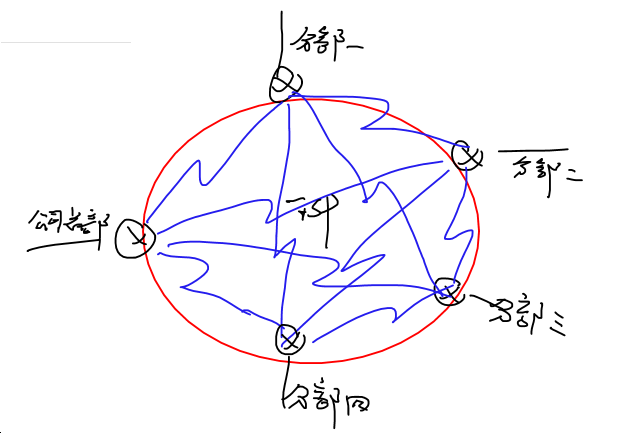 分部一
分部二
公司总部
分部三
分部四